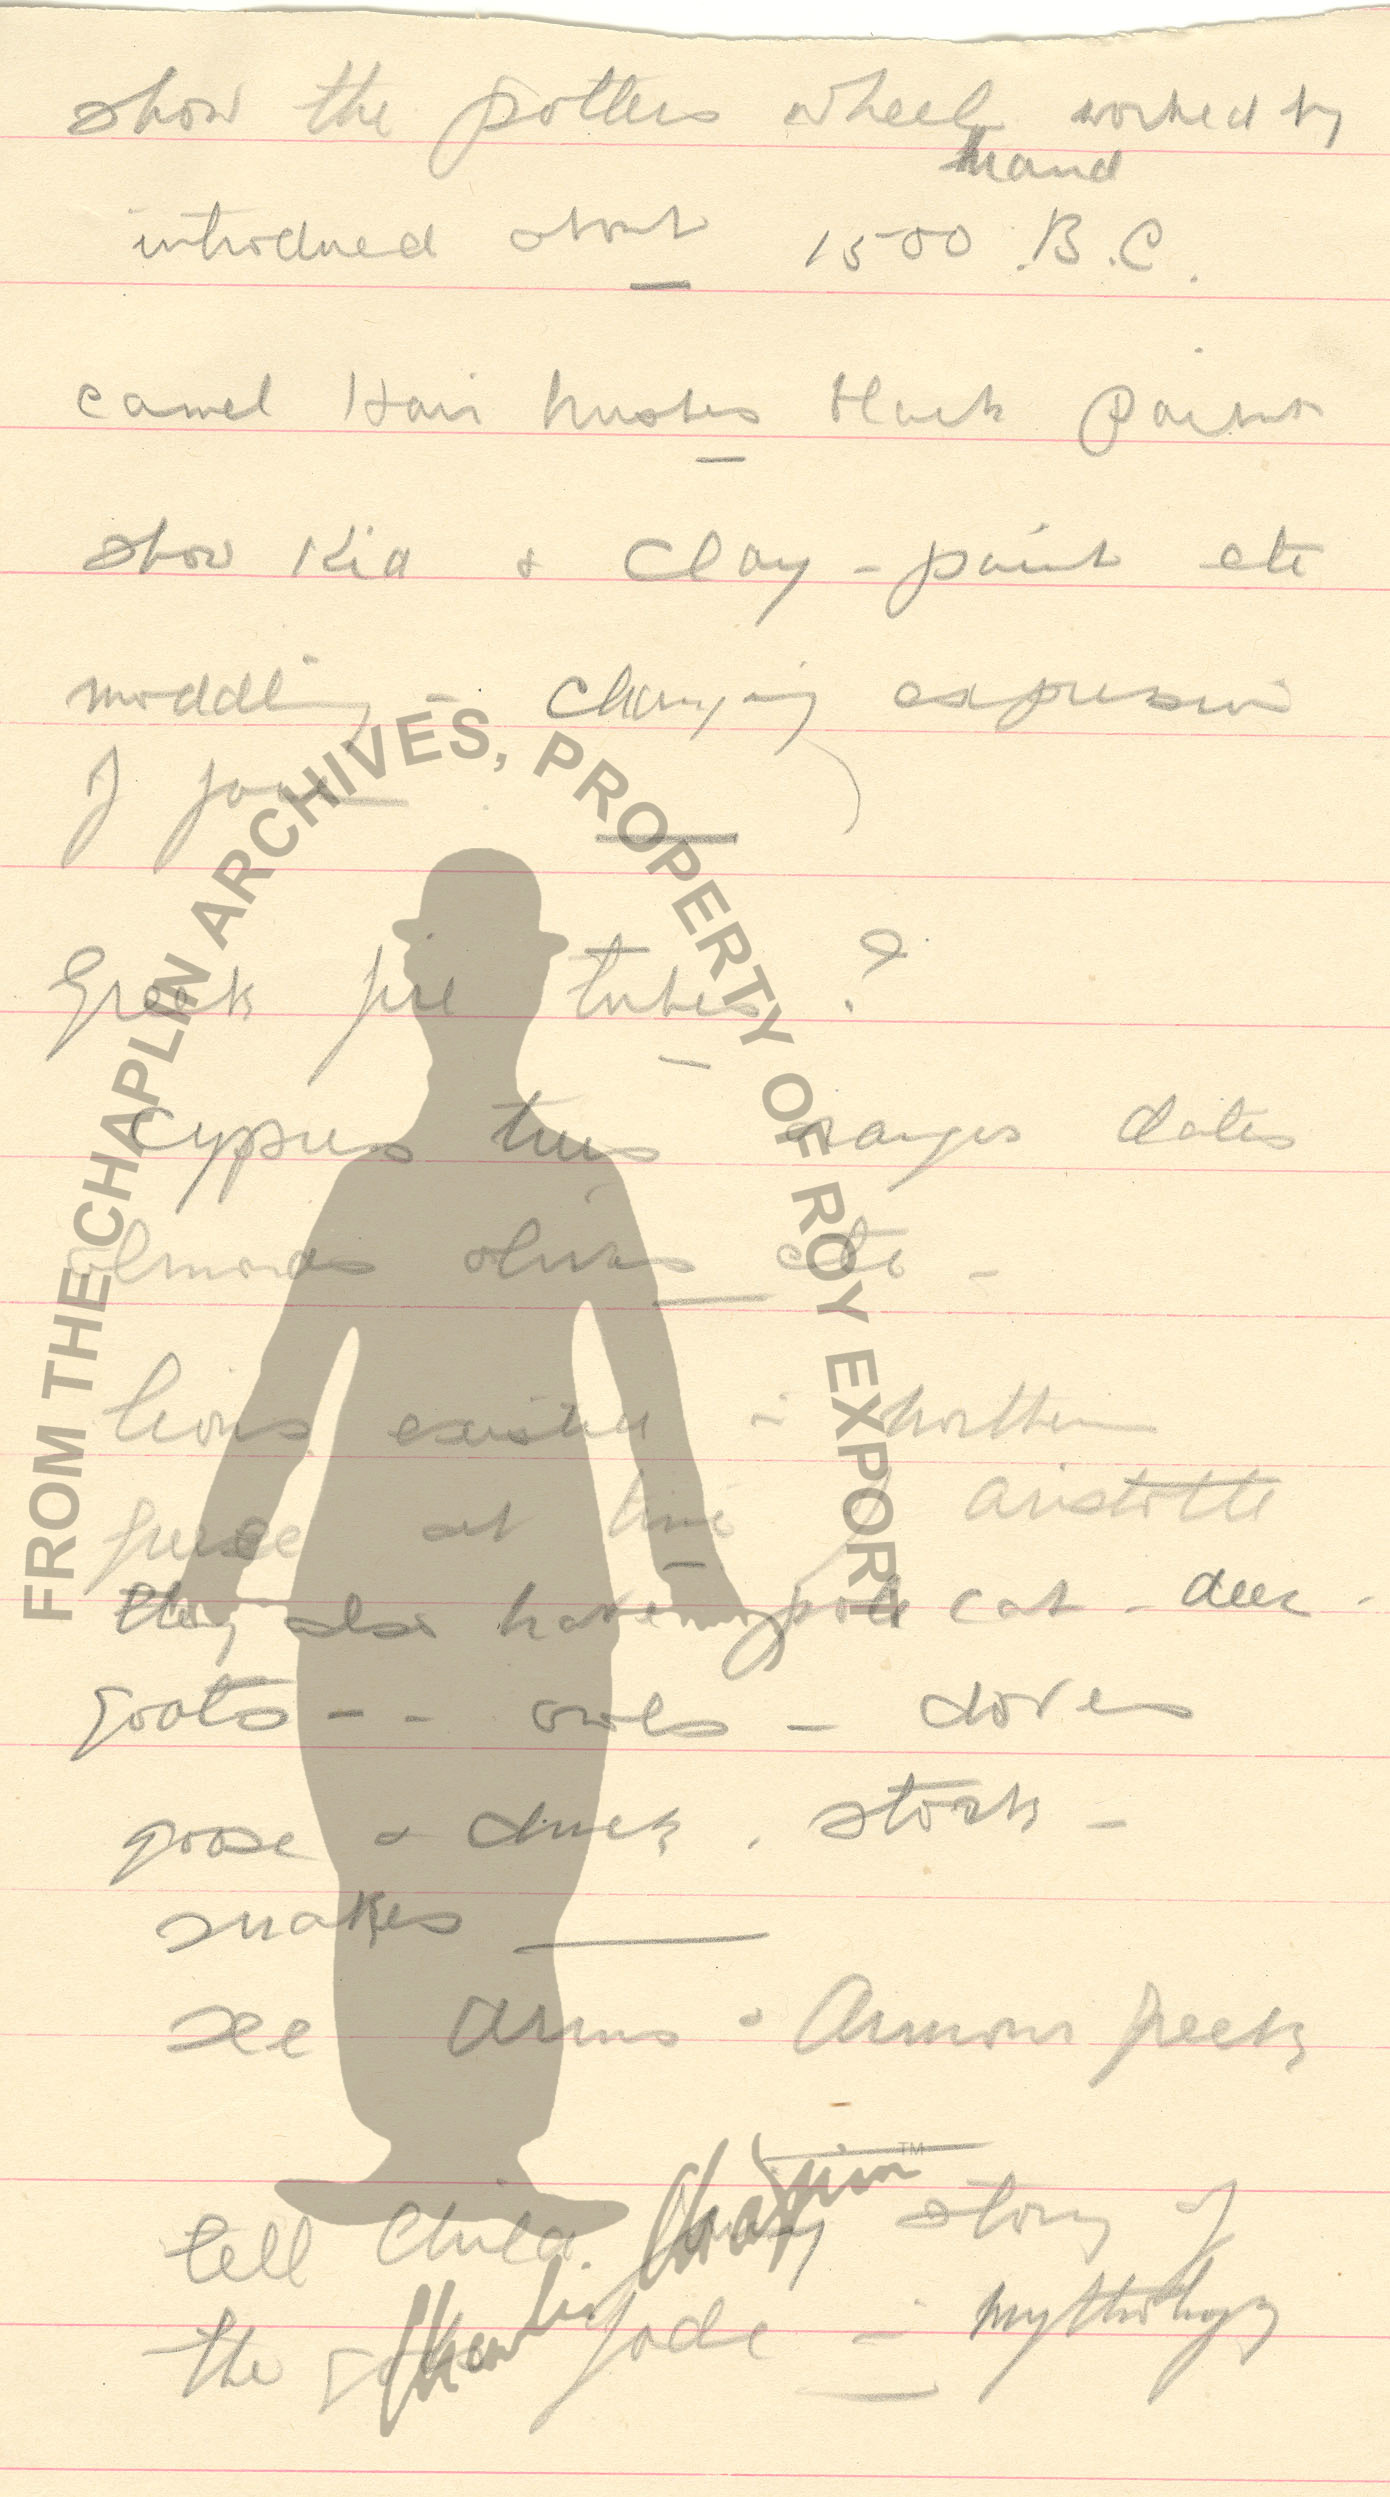 show the potters wheel worked by
hand
introduced about 1500 .B.C.
camel Hair brushes black paint
show Kid & Clay - paint etc
moddling - changing expression
of face
Greek fire tubes ?
cyprus trees oranges dates
almonds olives etc -
lions existed in northern
greece at time of aristotle
they also have pole cat - deer -
goats - - owls - doves
goose & duck . stork -
snakes
see arms & Armour greek
tell child story of
the in mythology
FROM THE CHAPLIN ARCHIVES, PROPERTY OF ROY EXPORT
Charlie Chaplin™